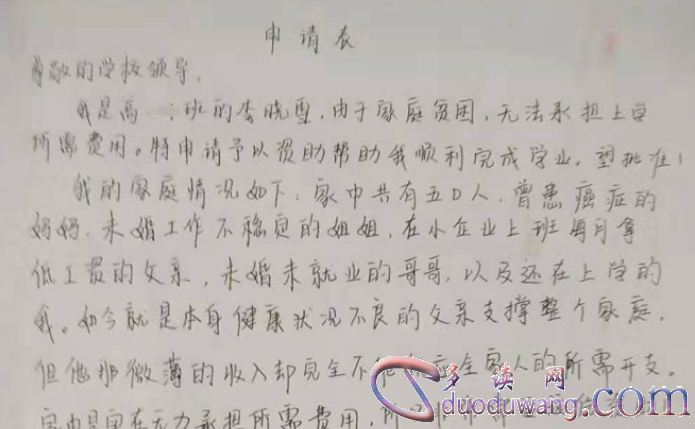 申请表
尊敬的学校领导,
我是高一 班的李晓雪,由于家庭贫困,无法承担上学
所需费用。特申请予以资助帮助我顺利完成学业。望批准!
我的家庭情况如下:家中共有五口人,曾患癌症的
妈妈,未婚工作不稳定的姐姐,在小企业上班每月拿
低工资的父亲,未婚未就业的哥哥,以及还在上学的
我。如今就是本身健康状况不良的父亲支撑整个家庭,
但他那微薄的收入却完全不能 应全家人的所需开支。
实在无力承担所需费用,所
多读网
duoduwang.com